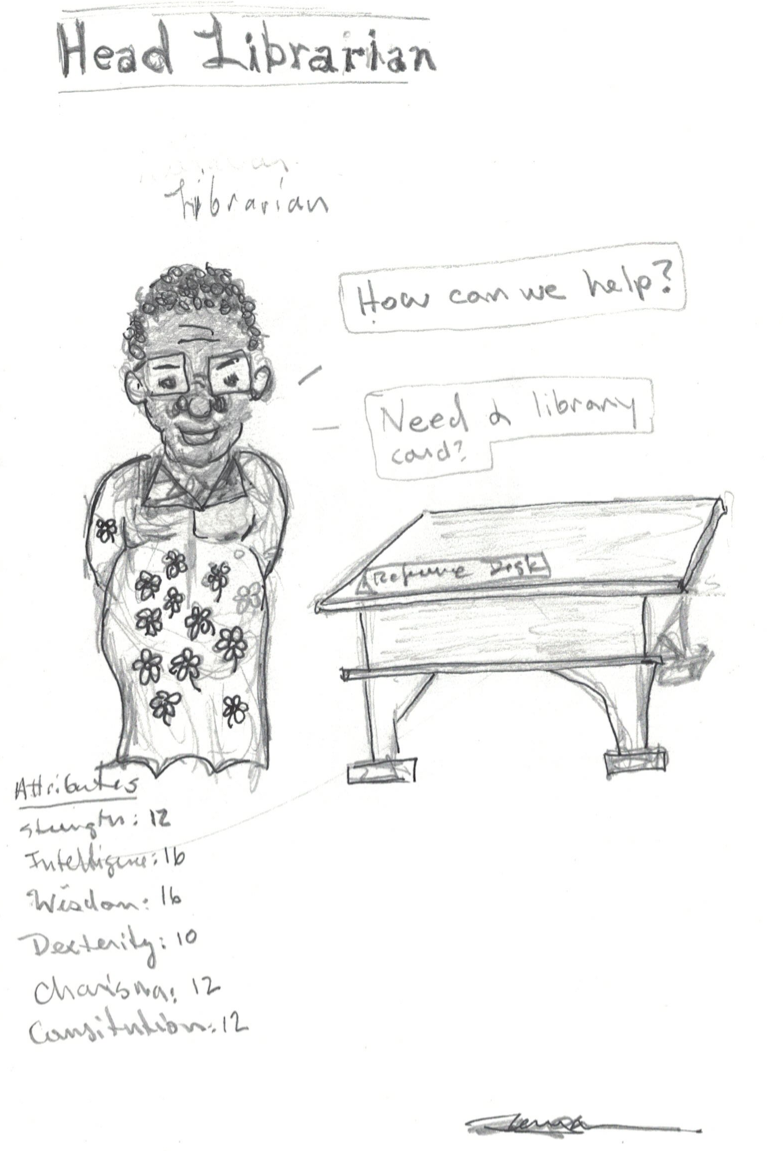 Head Librarian
Librarian
How can we help?
Need a library
card?
Reference Desk
Attributes
Strength: 12
Intelligence: 16
Wisdom: 16
Dexterity: 10
Charisma: 12
Consitution: 12